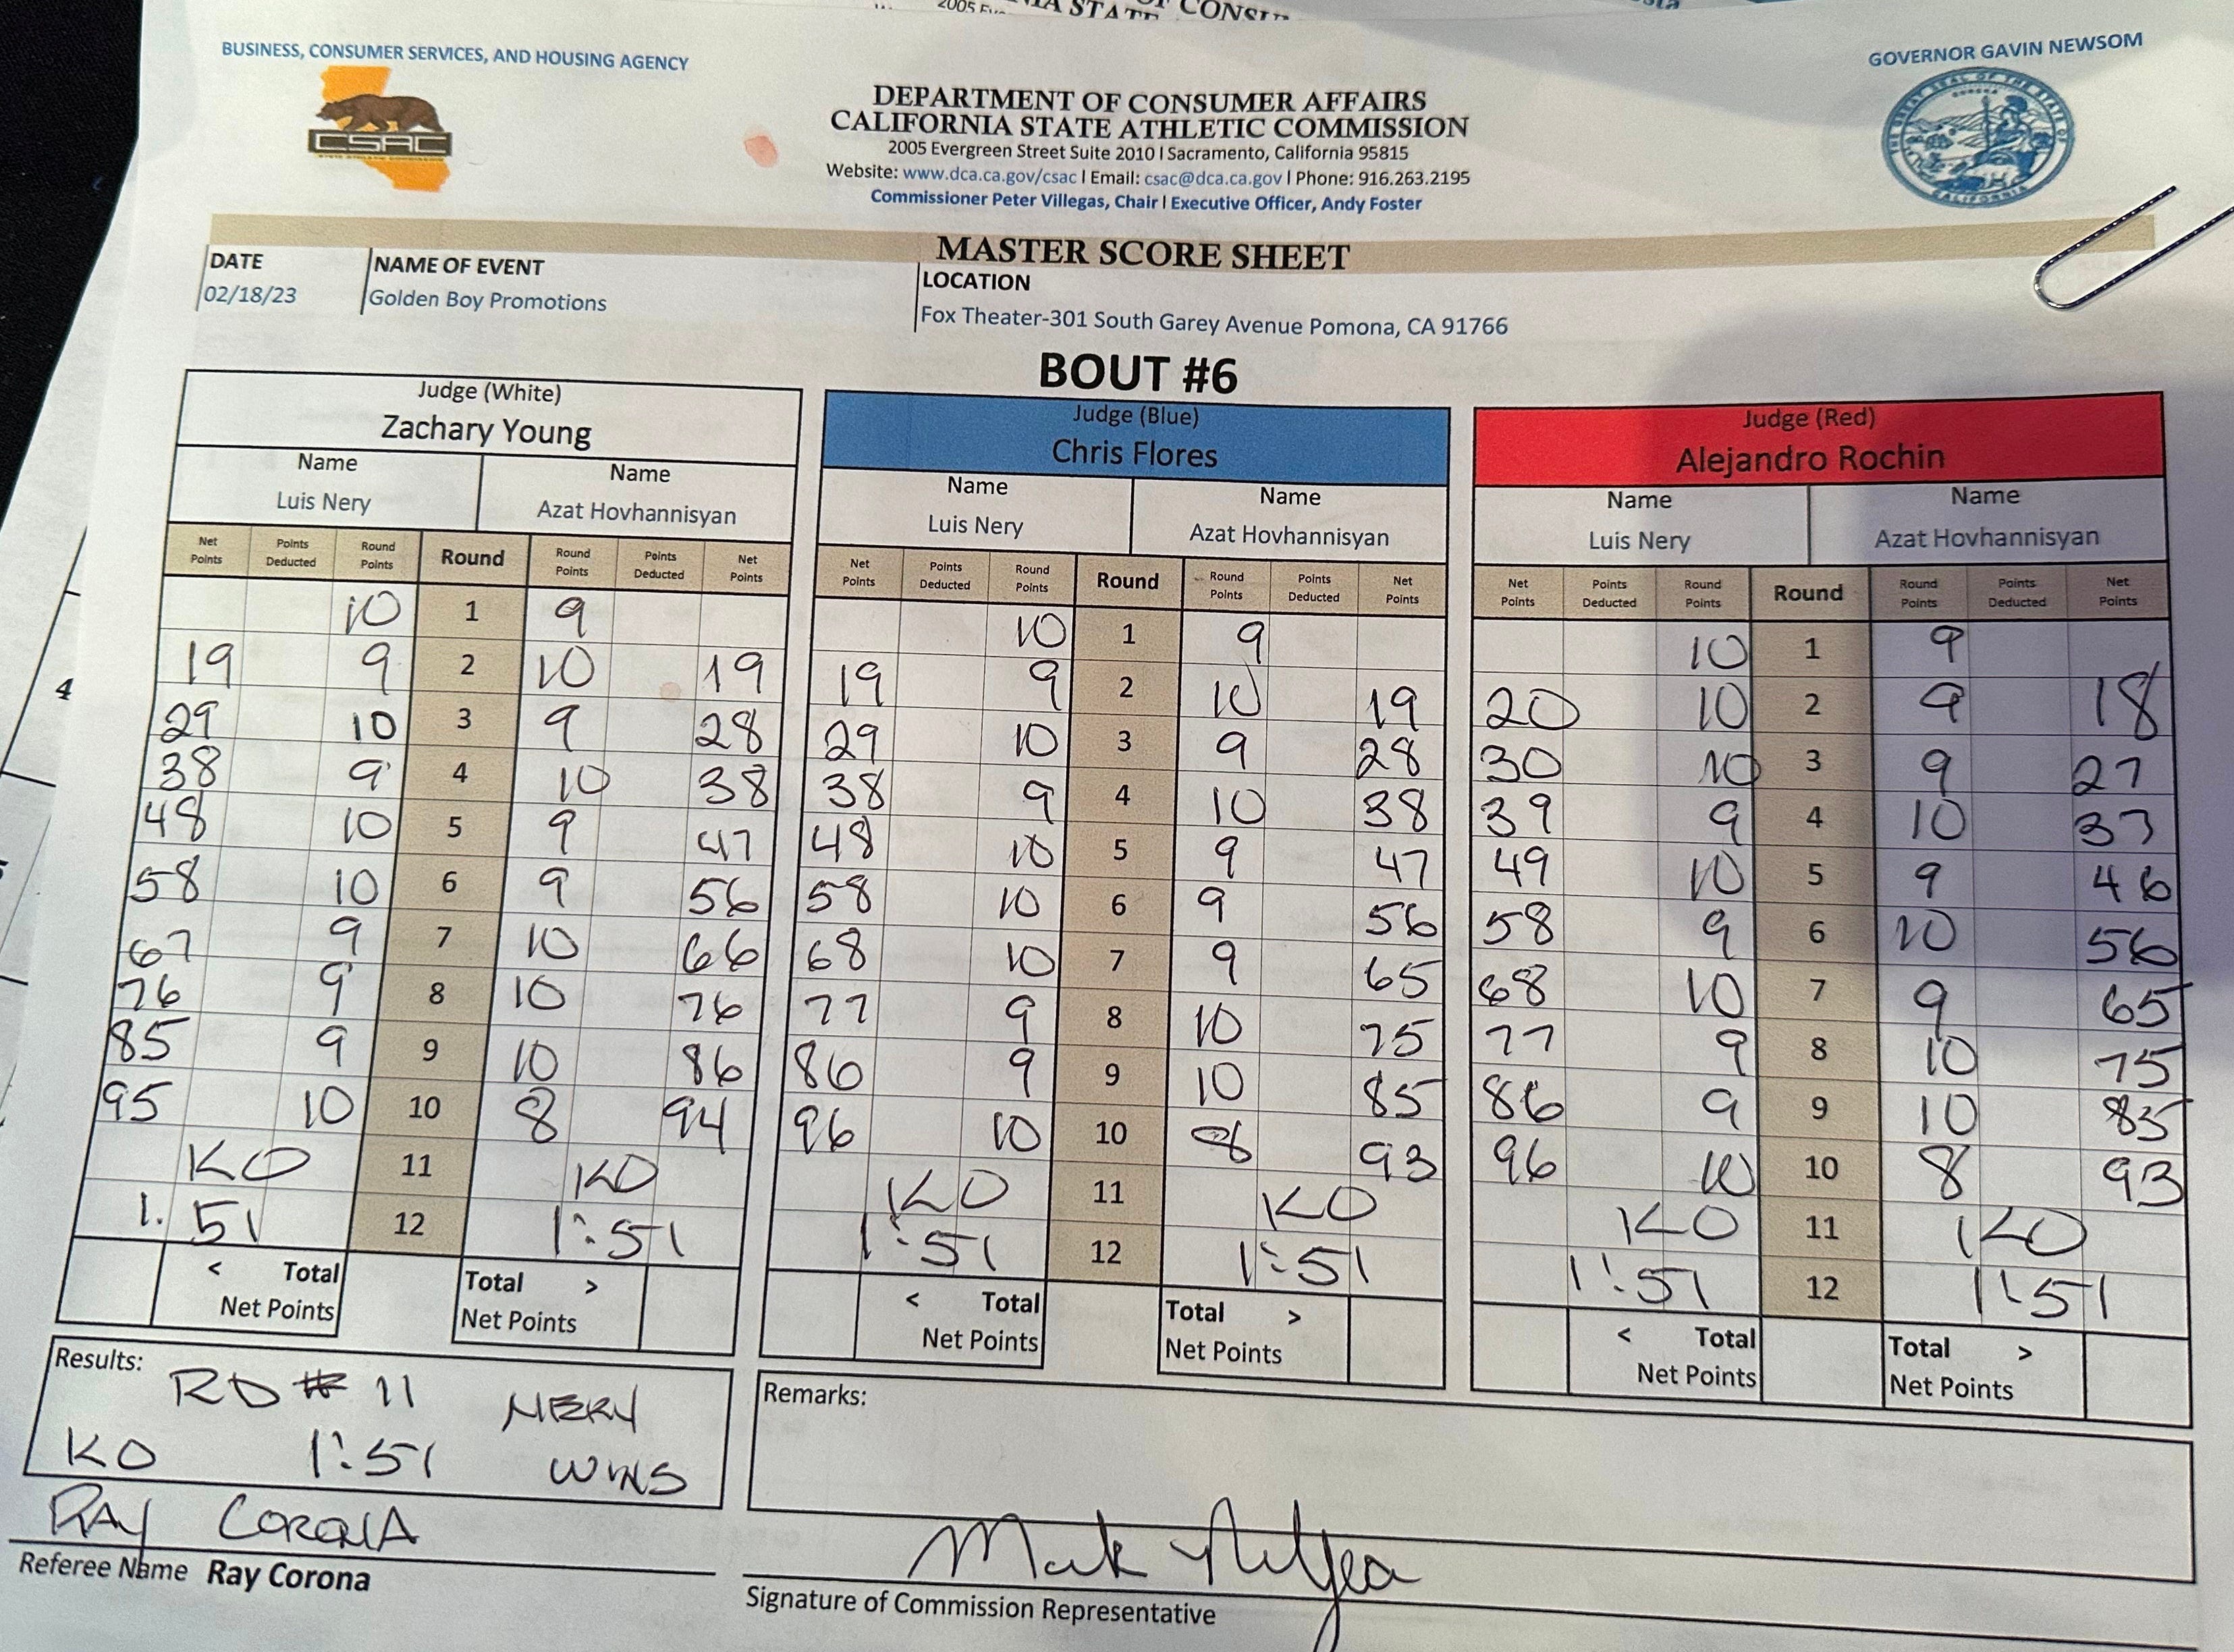 2005 Eve
IA STATE
OF CONSU
BUSINESS, CONSUMER SERVICES, AND HOUSING AGENCY
GOVERNOR GAVIN NEWSOM
CSAC
DEPARTMENT OF CONSUMER AFFAIRS
CALIFORNIA STATE ATHLETIC COMMISSION
2005 Evergreen Street Suite 2010 | Sacramento, California 95815
Website: www.dca.ca.gov/csac | Email: csac@dca.ca.gov | Phone: 916.263.2195
Commissioner Peter Villegas, Chair | Executive Officer, Andy Foster
MASTER SCORE SHEET
DATE NAME OF EVENT LOCATION
02/18/23 Golden Boy Promotions Fox Theater-301 South Garey Avenue Pomona, CA 91766
BOUT #6
Judge (White) Judge (Blue) Judge (Red)
Zachary Young Chris Flores Alejandro Rochin
Name Name Name Name Name Name
Luis Nery Azat Hovhannisyan Luis Nery Azat Hovhannisyan Luis Nery Azat Hovhannisyan
Net Points Points Deducted Round Points Round Round Points Points Deducted Net Points Net Points Points Deducted Round Points Round Round Points Points Deducted Net Points Net Points Points Deducted Round Points Round Round Points Points Deducted Net Points
10 1 9 10 1 9 10 1 9
19 9 2 10 19 19 9 2 10 19 20 10 2 9 18
29 10 3 9 28 29 10 3 9 28 30 10 3 9 27
38 9 4 10 38 38 9 4 10 38 39 9 4 10 37
48 10 5 9 47 48 10 5 9 47 49 10 5 9 46
58 10 6 9 56 58 10 6 9 56 58 9 6 10 56
67 9 7 10 66 68 10 7 9 65 68 10 7 9 65
76 9 8 10 76 77 9 8 10 75 77 9 8 10 75
85 9 9 10 86 86 9 9 10 85 86 9 9 10 85
95 10 10 8 94 96 10 10 8 93 96 10 10 8 93
KO 11 KO KO 11 KO KO 11 KO
1.51 12 1:51 1:51 12 1:51 1:51 12 1:51
< Total Total > < Total Total > < Total Total >
Net Points Net Points Net Points Net Points Net Points Net Points
Results: RD # 11 NERY
KO 1:51 WINS
Remarks:
RAY CORONA
Referee Name Ray Corona
Signature of Commission Representative
4